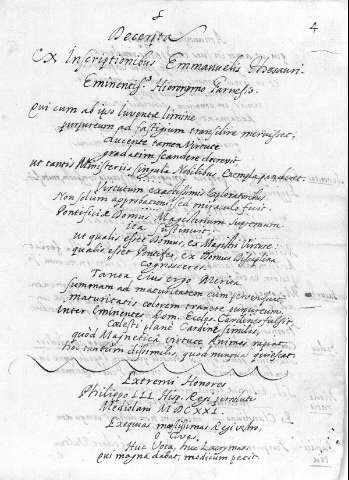 4
Decerpta
Ex Inscriptionibus Emmanuelis Thesauri.
Eminentiss.º Hieronymo
Qui cum ab ipso Iuventæ limine
purpureum ad fastigium transilire meruisset;
tamen Virtute
gradatim scandere
ut tantis Ministeriis singula Nobilibus Exempla
Virtutum exactissimis Exploratoribus
Non solum approbationi, sed miraculo fuit.
Pontificiæ Domus Magisterium Supremum
ita
ut qualis esset Domus, ex Magistri Virtute:
qualis esset Pontifex, ex Domus Disciplina
cognosceres.
Tanta Eius ergo Merita
summam ad maturitatem cum pervenissent
maturitatis colorem traxere purpureum.
Inter Eminentes Rom. Eccles. Cardines fulsit,
cælesti planè Cardini similis,
quòd Magnetica virtute Animas rapiat.
hoc tantum dissimilis, quod nunquam quiescat.
Extremi Honores
Philippo III Hisp. Regi
Mediolani MDCXXI.
Exequias mœstissimas Regi vestro,
O Cives,
Huc Vota, huc Lacrymas.
Qui magna dabat, modicum petit.